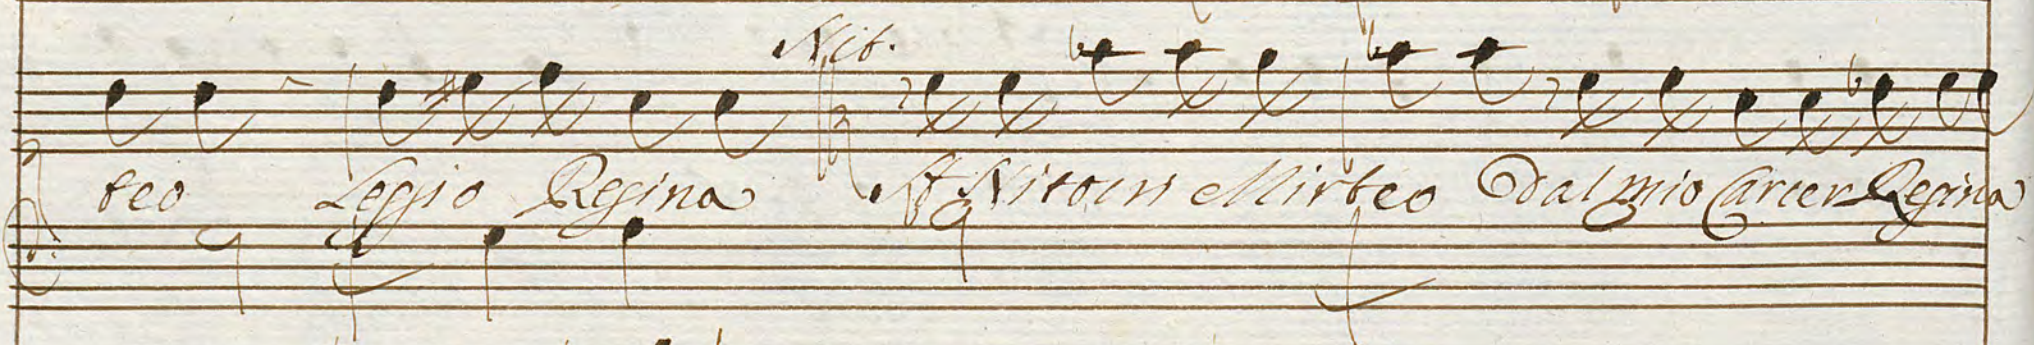 Nit.
teo Leggio Regina A Nitocri Mirteo Dal mio Carcer Regina